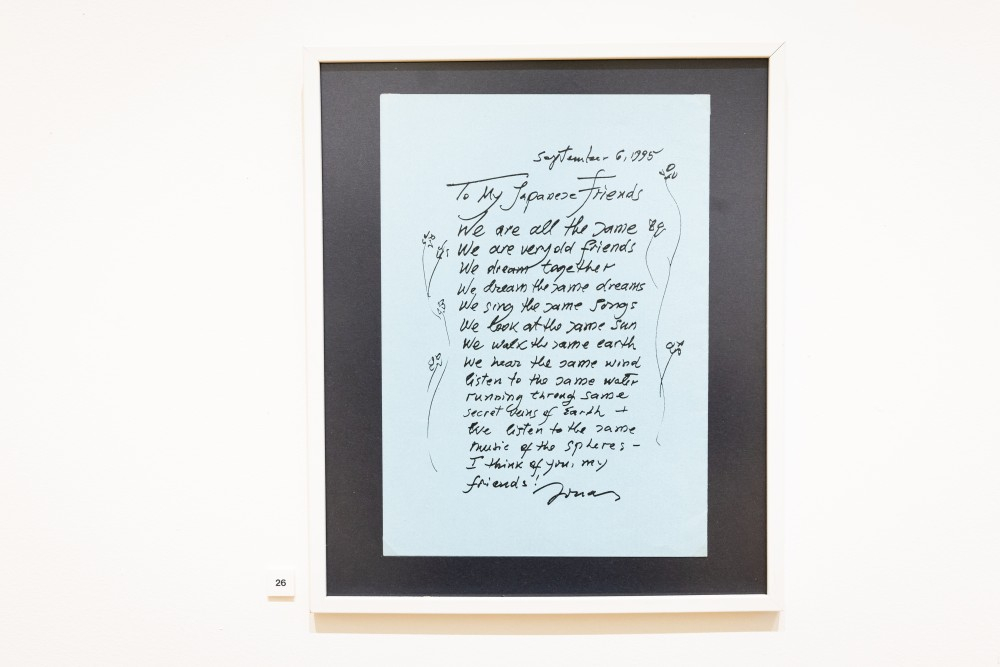 September 6, 1995
To My Japanese Friends
We are all the same
We are very old friends
We dream together
We dream the same dreams
We sing the same songs
We look at the same sun
We walk the same earth
We hear the same wind
listen to the same water
running through same
secret veins of Earth +
We listen to the same
music of the spheres -
I think of you, my
friends!
Jonas
26